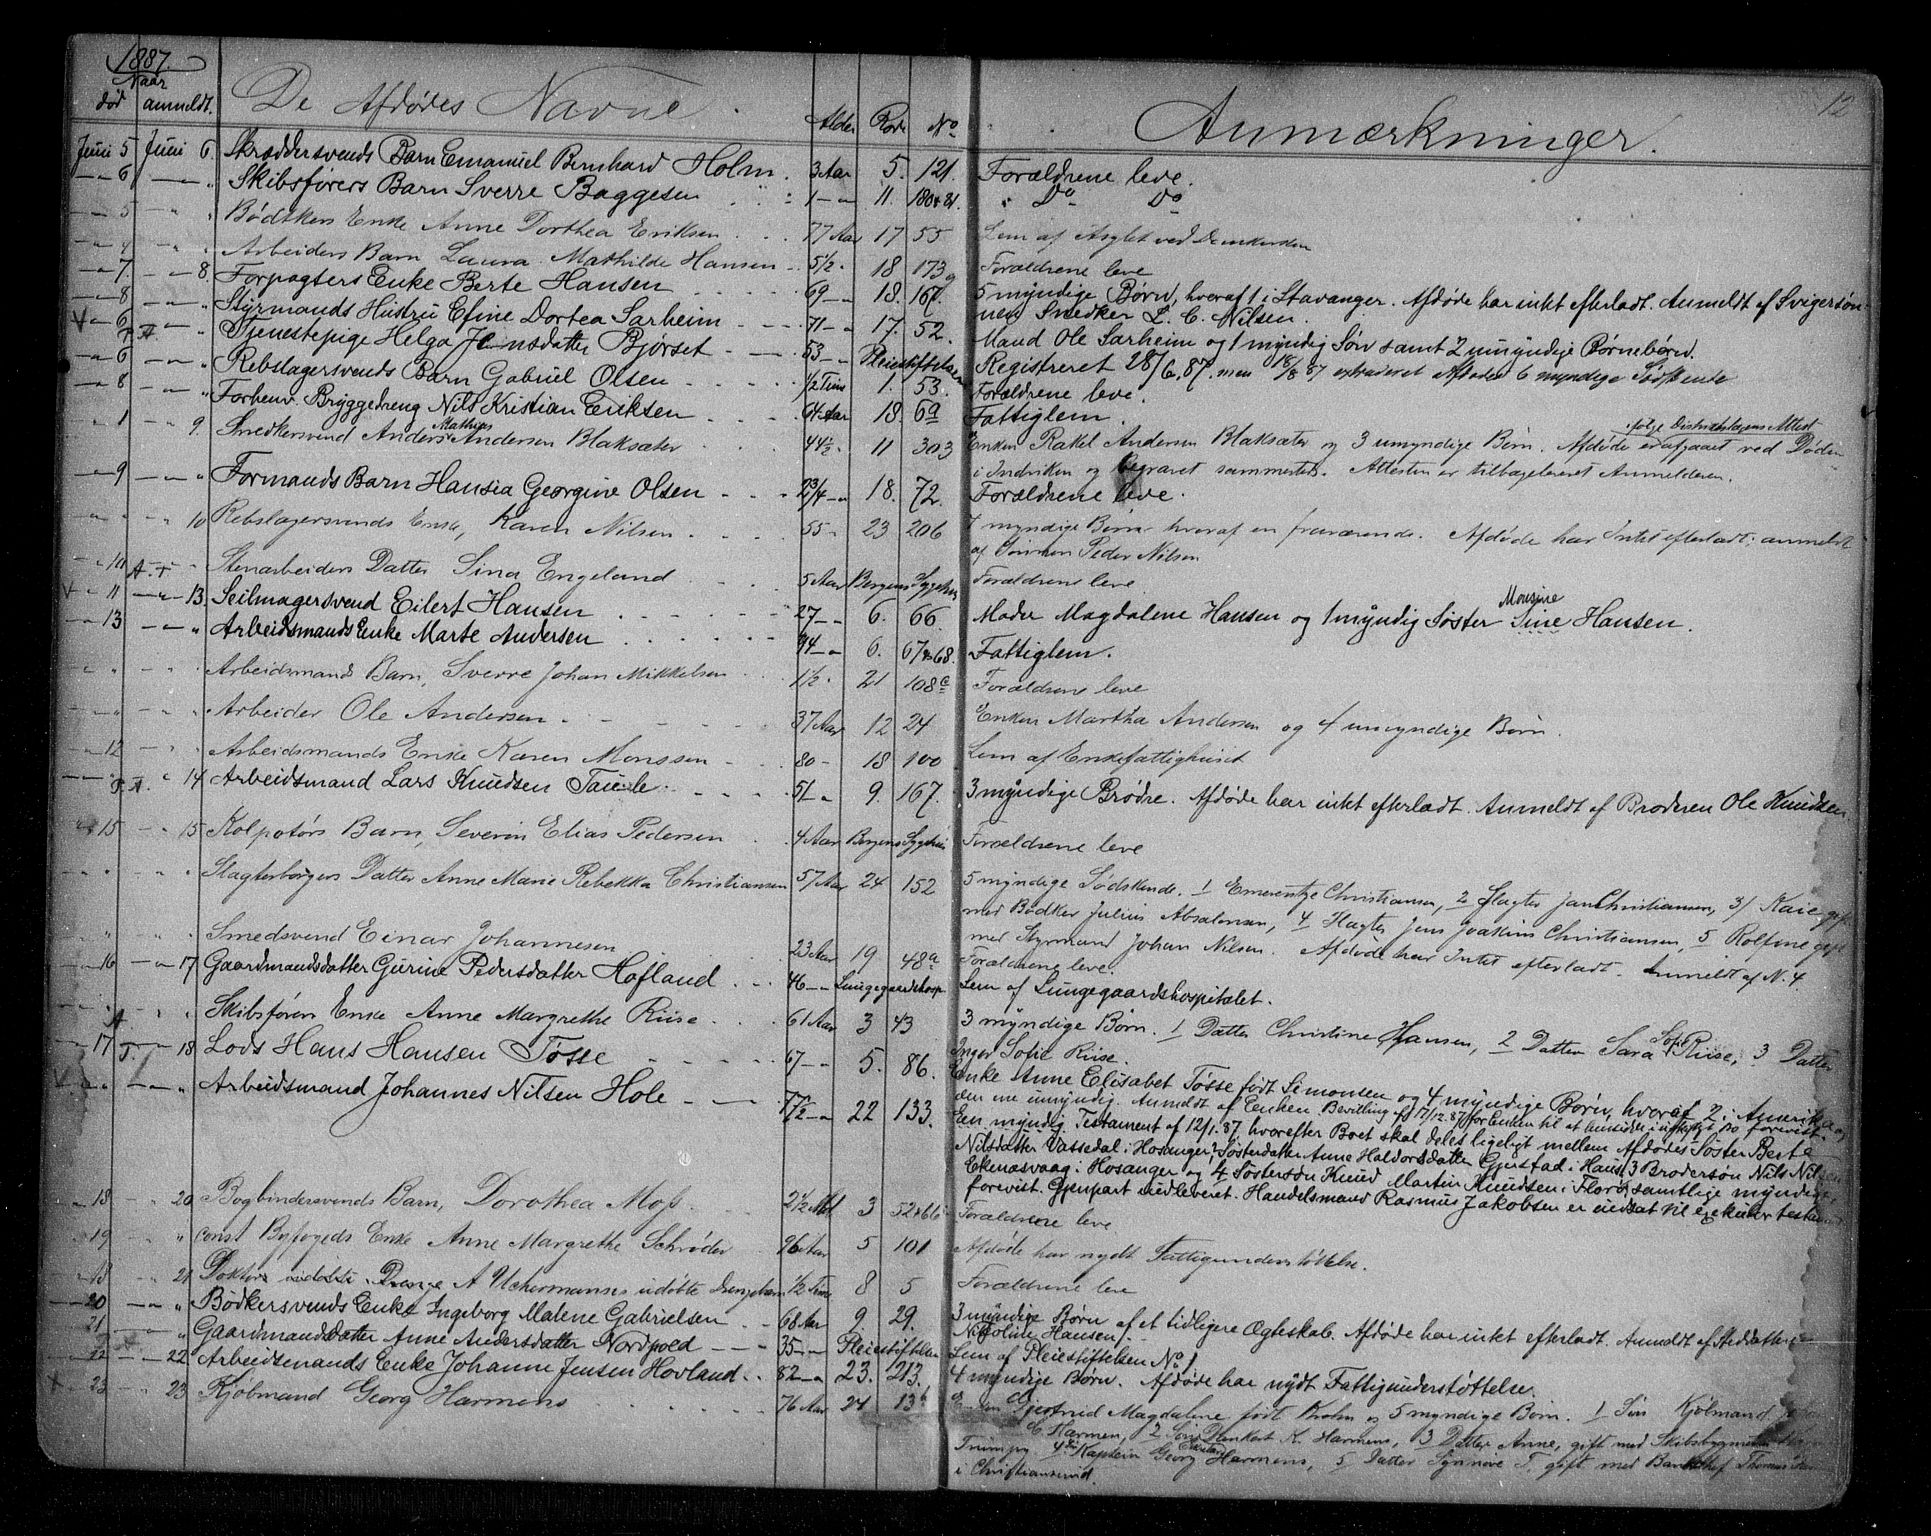 1887. 12
Naar
død anmeldt. De Afdødes Navne. Alder Rode No Anmærkninger.
Juni 5 Juni 6. Skræddersvends Barn Emanuel Bernhard Holm. 3 Aar 5. 121. Forældrene leve.
" 6 " " Skibsførers Barn Sverre Baggesen 1 " 11. 180 & 81. " Do Do
" 5 " " Bødtkers Enke Anne Dorthea Eriksen 77 Aar 17 55 Lem af Asylet ved Domkirken
" 4 " " Arbeiders Barn Laura Mathilde Hansen 5½ " 18 173 a Forældrene leve
" 7. " 8. Forpagters Enke Berte Hansen 69 " 18. 167. 5 myndige Børn, hvoraf 1 i Stavanger. Afdøde har intet efterladt. Anmeldt af Svigersøn-
nen Snedker L. C. Nilsen.
" 8 " " Styrmands Hustru Efine Dortea Sarheim 71 " 17. 52. Mand Ole Sarheim og 1 myndig Søn samt 2 umyndige Børnebørn.
V " 6 " " Tjenestepige Helga Jensdatter Bjørset 53 " Pleiestiftelsen Registreret 28/6.87. men 18/8 87 extraderet Afdødes 6 myndige Sødskende
" 6 " " Rebslagersvends Barn Gabriel Olsen ½ Time 1. 53. Forældrene leve.
" 8 " " Forhenv. Bryggedreng Nils Kristian Eriksen 64 Aar 18. 6a Fattiglem.
" 1 " 9. Snedkersvend Anders Mathias Andersen Blaksæter 44½ " 11 303 Enken Rakel Andersen Blaksæter og 3 umyndige Børn. Afdøde er ifølge Distriktslægens Attest afgaaet ved Døden
i Indviken og begravet sammesteds. Attesten er tilbageleveret Anmelderen.
" 9 " " Formands Barn Hansia Georgine Olsen 2¾ " 18. 72. Forældrene leve.
" " " 10 Rebslagersvends Enke, Karen Nilsen 55 " 23 206 7 myndige Børn hvoraf en fraværende. Afdøde har Intet efterladt; anmeldt
af Sønnen Peder Nilsen
" 10 " " Stenarbeiders Datter Sina Engeland 5 Aar Bergens Sygehus Forældrene leve
V " 11 " 13. Seilmagersvend Eilert Hansen 27 " 6. 66. Moder Magdalene Hansen og 1 myndig Søster Monsine Sine Hansen.
" 13 " " Arbeidsmands Enke Marte Andersen 94 " 6. 67 & 68. Fattiglem.
" " " " Arbeidsmands Barn, Sverre Johan Mikkelsen 1½ " 21 108 c Forældrene leve
" " " " Arbeider Ole Andersen 37 Aar 12 24 Enken Martha Andersen og 4 umyndige Børn.
" 12 " " Arbeidsmands Enke Karen Monssen 80 " 18 100 Lem af Enkefattighuset
" " " 14 Arbeidsmand Lars Knudsen Taule 51 " 9. 167. 3 myndige Brødre. Afdøde har intet efterladt. Anmeldt af Broderen Ole Knudsen.
" 15 " 15 Kolportørs Barn, Severin Elias Pedersen 4 Aar Bergens Sygehus Forældrene leve
" " " " Slagterborgers Datter Anne Marie Rebekka Christiansen 57 Aar 24 152 5 myndige Sødskende. 1 Emerentze Christiansen, 2 Slagter Jan Christiansen, 3/ Kaie gift
med Bødker Julius Absalonsen, 4 Slagter Jens Joakim Christiansen, 5 Rolfine gift
med Styrmand Johan Nilsen. Afdøde har Intet efterladt. Anmeldt af N. 4
" " " " Smedsvend Einar Johannesen 23 Aar 19 48 a Forældrene leve.
" 16 " 17 Gaardmandsdatter Gurine Pedersdatter Hofland 46 " Lungegaardshosp. Lem af Lungegaardshospitalet.
" " " " Skibsførers Enke Anne Margrethe Riise 61 Aar 3 43 3 myndige Børn. 1 Datter Christine Hansen, 2 Datter Sara Sofie Riise, 3 Datter
Inger Sofie Riise.
" 17 " 18 Lods Hans Hansen Tösse 67 " 5. 86. Enke Anne Elisabet Tösse født Simonsen og 4 myndige Børn, hvoraf 2 i Amerika og
den ene umyndig. Anmeldt af Enken. Bevilling af 17/12.87 for Enken til at hensidde i uskiftet Bo forevist.
V " " " " Arbeidsmand Johannes Nilsen Hole 77½ " 22 133. Een myndig. Testament af 12/1.87 hvorefter Boet skal deles ligeligt mellem Afdødes Søster Berte
Nilsdatter Vassedal i Hosanger, 2 Søsterdatter Anne Haldorsdatter Gjerstad i Haus, 3 Brodersøn Nils Nilsen
Ekenæsvaag i Hosanger og 4 Søstersøn Knud Martin Knudsen i Florø, samtlige myndige,
forevist. Gjenpart indleveret. Handelsmand Rasmus Jakobsen er indsat til exekutor testamenti
" 18 " 20 Bogbindersvends Barn, Dorothea Moss 2½ Md 3 52 & 66 Forældrene leve
" 19 " " const Byfogeds Enke Anne Margrethe Schrøder 96 Aar 5 101 Afdøde har nydt Fattigunderstøttelse.
" 19 " 21 Doktor A Uchermanns udøbte Drengebarn ½ Time 8 5 Forældrene leve
" 20 " " Bødkersvends Enke Ingeborg Malene Gabrielsen 68 Aar 9. 29. 3 myndige Børn af et tidligere Ægteskab. Afdøde har intet efterladt. Anmeldt af Steddatter
Nikoline Hansen.
" 21 " " Gaardmandsdatter Anne Andersdatter Nordpold 35 " Pleiestiftelsen Lem af Pleiestiftelsen No 1
" 22 " 22 Arbeidsmands Enke Johanne Jensen Hovland 82 " 23. 213. 4 myndige Børn. Afdøde har nydt Fattigunderstøttelse.
" 23 " 23 Kjøbmand Georg Harmens 76 Aar 24 13 b Gjertrud Magdalene født Krohn og 5 myndige Børn. 1 Søn Kjøbmand
C Harmens, 2 Søn Dankert K. Harmens, 3 Datter Anne, gift med Skibsbygmester
Trumpy 4 Søn Kaptein Georg Harmens, 5 Datter Synnøve T. gift med Bankchef Thomas
i Christiansund.